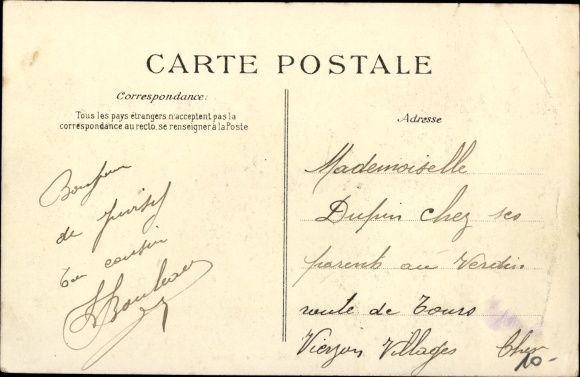 CARTE POSTALE
Correspondance:
Tous les pays étrangers n'acceptent pas la
correspondance au recto, se renseigner à la Poste
Adresse
Bonjour
de Juvisy
ton cousin
Mademoiselle
Dupin chez ses
parents au Verdin
route de Tours
Vierzon Villages Cher
10-